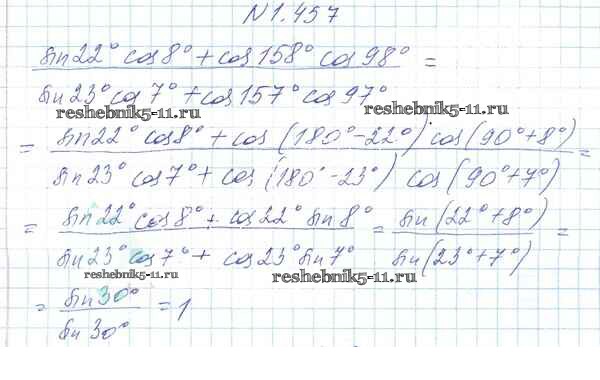 N 1.457
sin 22° cos 8° + cos 158° cos 98°
=
sin 23° cos 7° + cos 157° cos 97°
reshebnik5-11.ru reshebnik5-11.ru
= sin 22° cos 8° + cos (180° - 22°) cos (90° + 8°) =
sin 23° cos 7° + cos (180° - 23°) cos (90° + 7°)
= sin 22° cos 8° + cos 22° sin 8° = sin (22° + 8°) =
sin 23° cos 7° + cos 23° sin 7° sin (23° + 7°)
reshebnik5-11.ru reshebnik5-11.ru
= sin 30° = 1
sin 30°